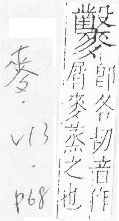 即各切音作
屑麥蒸之也
麥
·
v13
·
p68